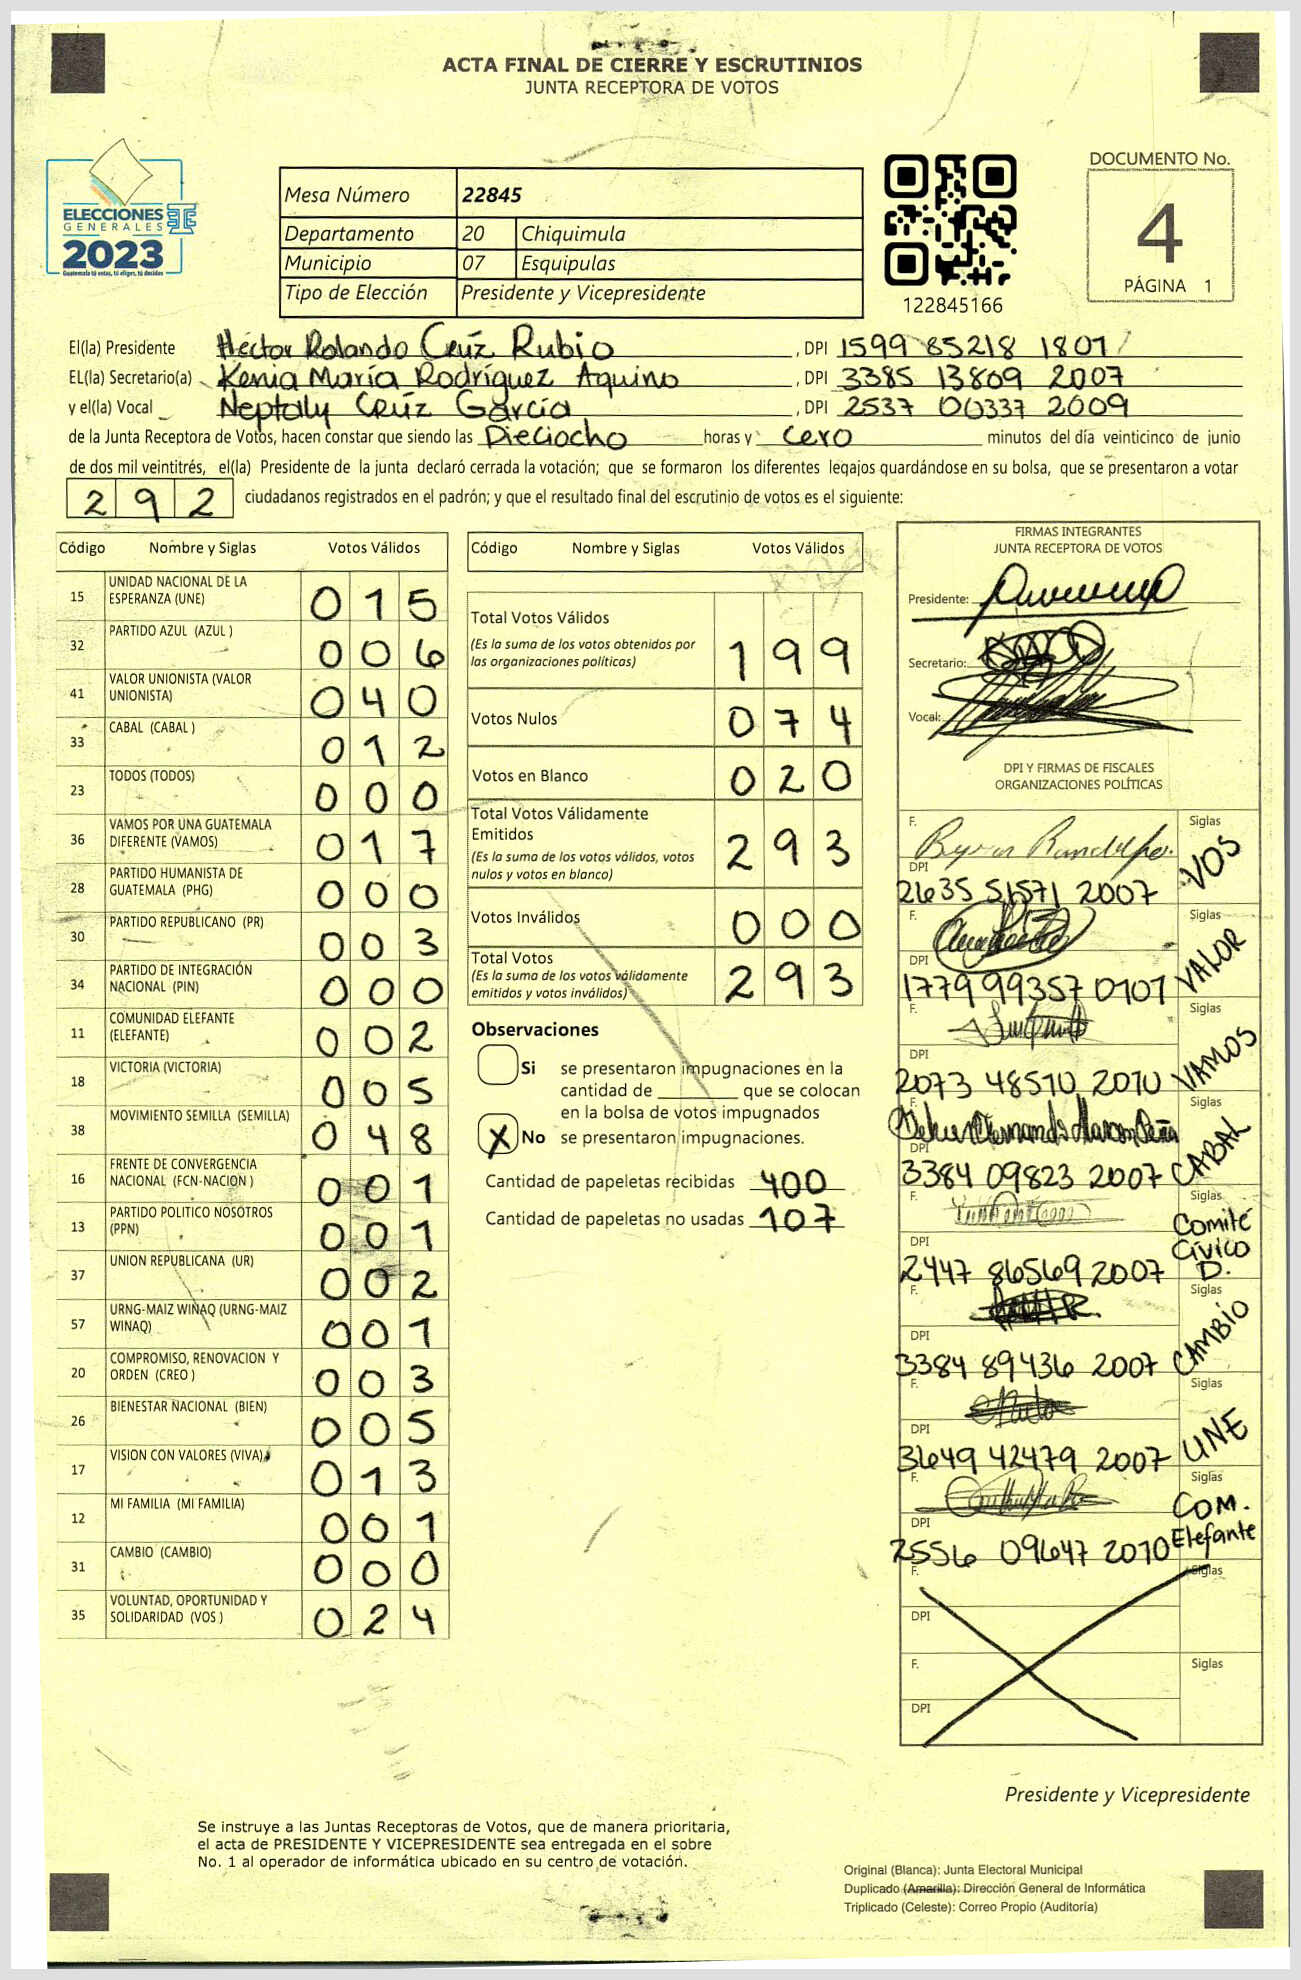 ACTA FINAL DE CIERRE Y ESCRUTINIOS
JUNTA RECEPTORA DE VOTOS
ELECCIONES
GENERALES
2023
Guatemala tú votas, tú eliges, tú decides
Mesa Número 22845
Departamento 20 Chiquimula
Municipio 07 Esquipulas
Tipo de Elección Presidente y Vicepresidente
122845166
DOCUMENTO No.
4
PÁGINA 1
El(la) Presidente Héctor Rolando Cruz Rubio , DPI 1599 85218 1801
EL(la) Secretario(a) Kenia María Rodríguez Aquino , DPI 3385 13809 2007
y el(la) Vocal Neptaly Cruz García , DPI 2537 00337 2009
de la Junta Receptora de Votos, hacen constar que siendo las Dieciocho horas y cero minutos del día veinticinco de junio
de dos mil veintitrés, el(la) Presidente de la junta declaró cerrada la votación; que se formaron los diferentes legajos guardándose en su bolsa, que se presentaron a votar
292 ciudadanos registrados en el padrón; y que el resultado final del escrutinio de votos es el siguiente:
Código Nombre y Siglas Votos Válidos
15 UNIDAD NACIONAL DE LA ESPERANZA (UNE) 015
32 PARTIDO AZUL (AZUL ) 006
41 VALOR UNIONISTA (VALOR UNIONISTA) 040
33 CABAL (CABAL ) 012
23 TODOS (TODOS) 000
36 VAMOS POR UNA GUATEMALA DIFERENTE (VAMOS) 017
28 PARTIDO HUMANISTA DE GUATEMALA (PHG) 000
30 PARTIDO REPUBLICANO (PR) 003
34 PARTIDO DE INTEGRACIÓN NACIONAL (PIN) 000
11 COMUNIDAD ELEFANTE (ELEFANTE) 002
18 VICTORIA (VICTORIA) 005
38 MOVIMIENTO SEMILLA (SEMILLA) 048
16 FRENTE DE CONVERGENCIA NACIONAL (FCN-NACION ) 001
13 PARTIDO POLITICO NOSOTROS (PPN) 001
37 UNION REPUBLICANA (UR) 002
57 URNG-MAIZ WINAQ (URNG-MAIZ WINAQ) 001
20 COMPROMISO, RENOVACION Y ORDEN (CREO ) 003
26 BIENESTAR NACIONAL (BIEN) 005
17 VISION CON VALORES (VIVA) 013
12 MI FAMILIA (MI FAMILIA) 001
31 CAMBIO (CAMBIO) 000
35 VOLUNTAD, OPORTUNIDAD Y SOLIDARIDAD (VOS ) 024
Código Nombre y Siglas Votos Válidos
Total Votos Válidos
(Es la suma de los votos obtenidos por las organizaciones políticas) 199
Votos Nulos 074
Votos en Blanco 020
Total Votos Válidamente Emitidos
(Es la suma de los votos válidos, votos nulos y votos en blanco) 293
Votos Inválidos 000
Total Votos
(Es la suma de los votos válidamente emitidos y votos inválidos) 293
Observaciones
Si se presentaron impugnaciones en la
cantidad de ________ que se colocan
en la bolsa de votos impugnados
X No se presentaron impugnaciones.
Cantidad de papeletas recibidas 400
Cantidad de papeletas no usadas 107
FIRMAS INTEGRANTES
JUNTA RECEPTORA DE VOTOS
Presidente:
Secretario:
Vocal:
DPI Y FIRMAS DE FISCALES
ORGANIZACIONES POLÍTICAS
F. Siglas
DPI 2635 51571 2007 VOS
F. Siglas
DPI 1779 99357 0101 VALOR
F. Siglas
DPI 2073 48510 2010 VAMOS
F. Siglas
DPI 3384 09823 2007 CABAL
F. Siglas
DPI 2447 86569 2007 Comité Cívico D.
F. Siglas
DPI 3384 89436 2007 CAMBIO
F. Siglas
DPI 3649 42479 2007 UNE
F. Siglas
DPI 2556 09647 2010 COM. Elefante
F. Siglas
DPI
F. Siglas
DPI
Presidente y Vicepresidente
Se instruye a las Juntas Receptoras de Votos, que de manera prioritaria,
el acta de PRESIDENTE Y VICEPRESIDENTE sea entregada en el sobre
No. 1 al operador de informática ubicado en su centro de votación.
Original (Blanca): Junta Electoral Municipal
Duplicado (Amarilla): Dirección General de Informática
Triplicado (Celeste): Correo Propio (Auditoría)